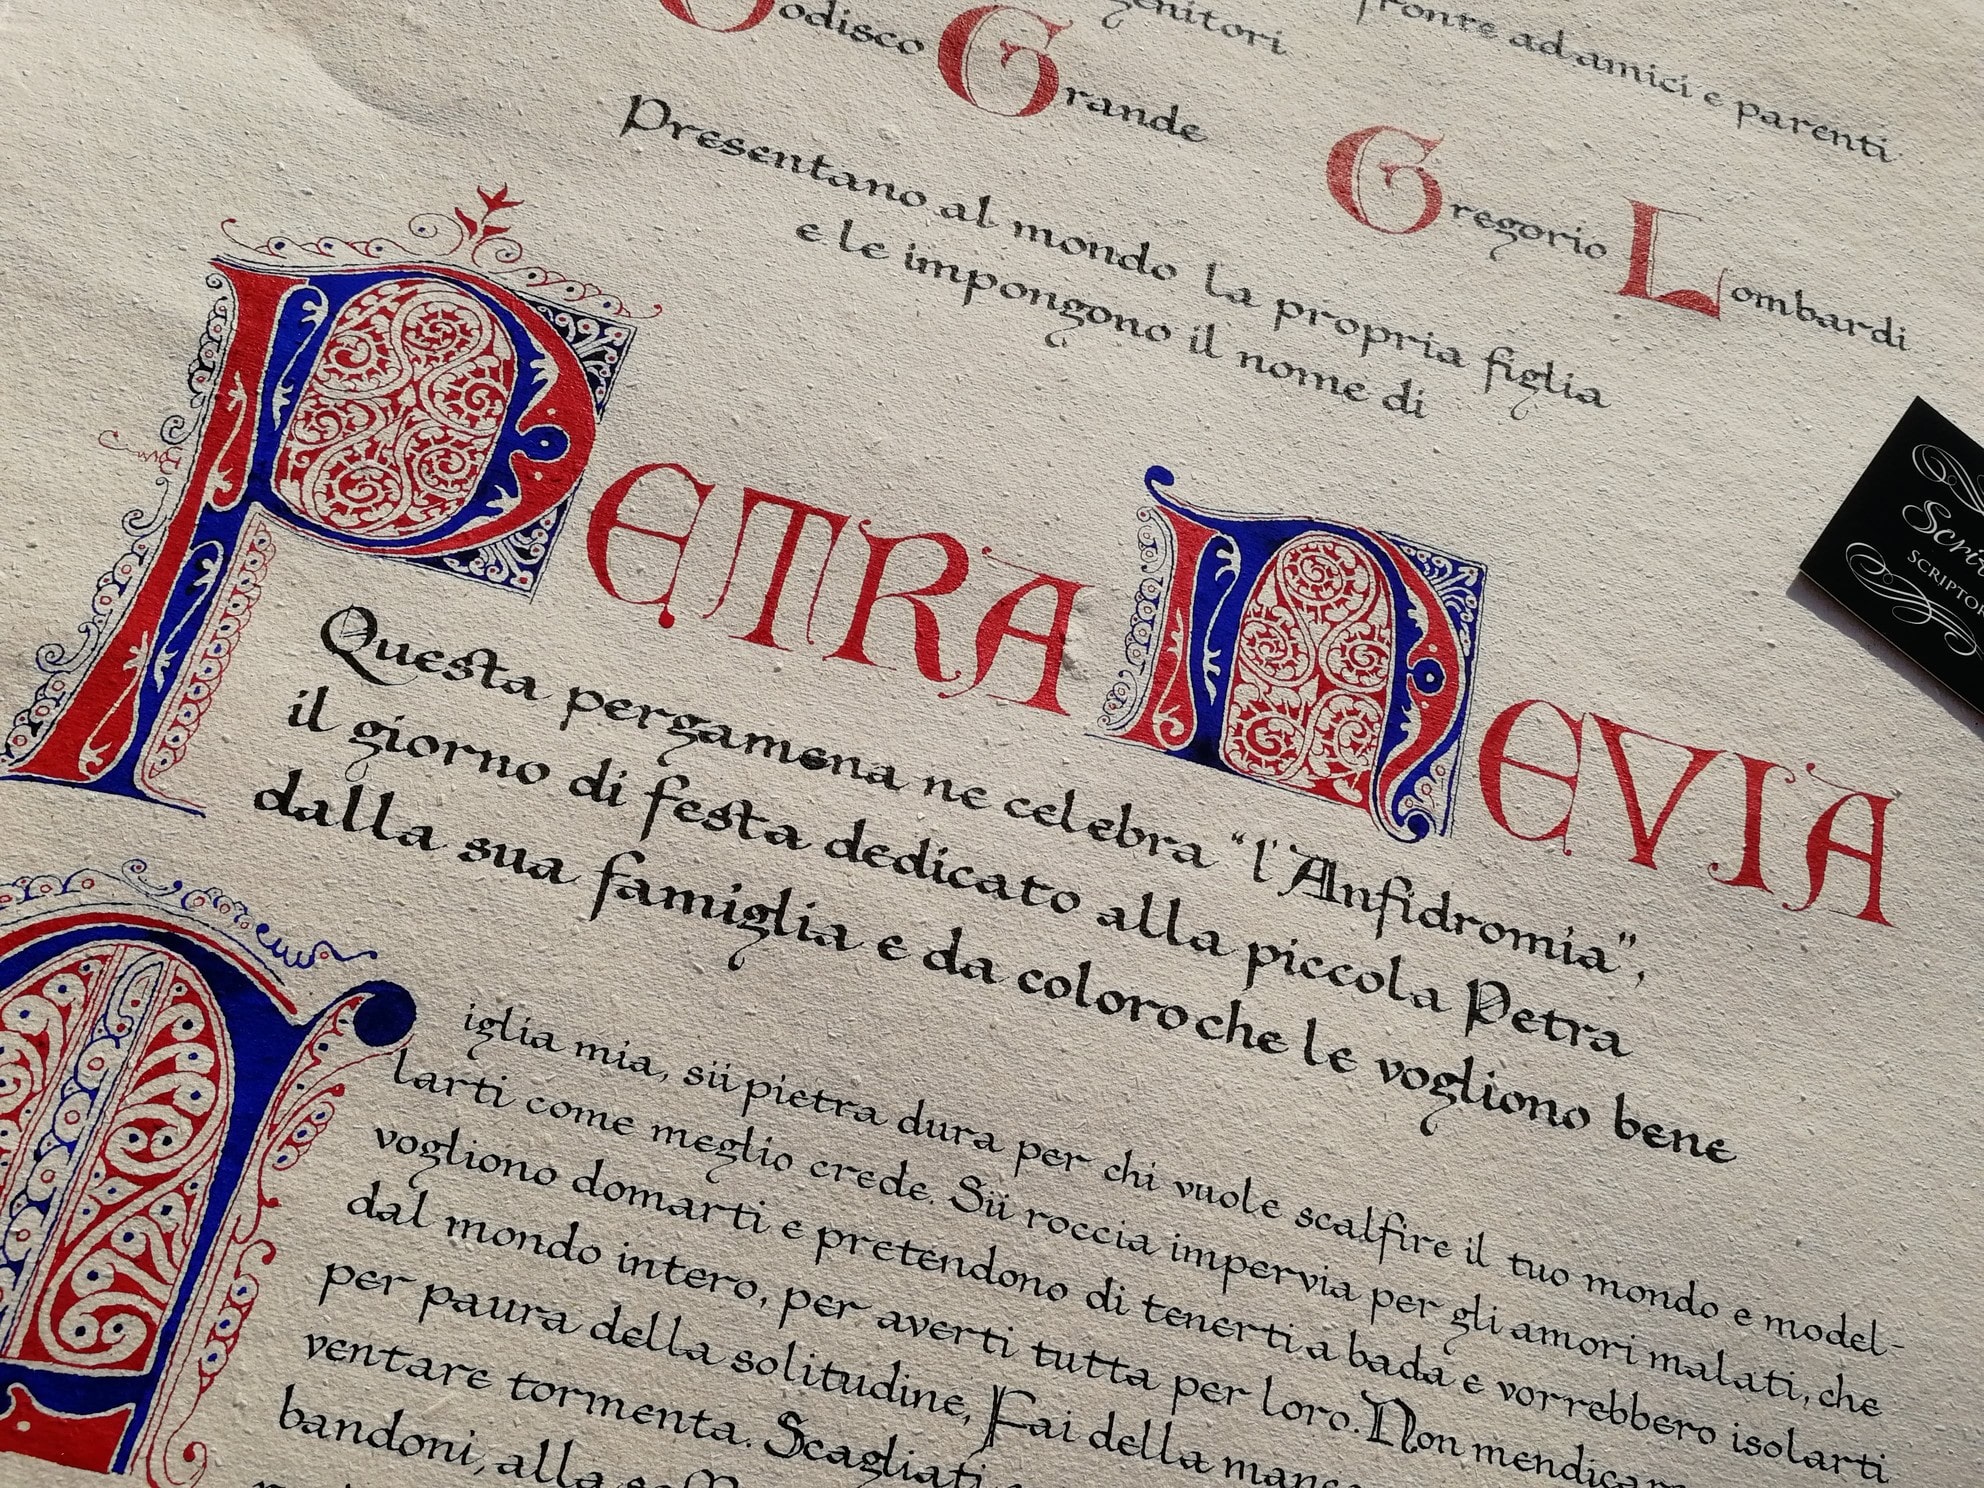 genitori
fronte ad amici e parenti
odisco Grande
Gregorio Lombardi
Presentano al mondo la propria figlia
e le impongono il nome di
PETRA NEVIA
Questa pergamena ne celebra “l'Anfidromia”,
il giorno di festa dedicato alla piccola Petra
dalla sua famiglia e da coloro che le vogliono bene
iglia mia, sii pietra dura per chi vuole scalfire il tuo mondo e model-
larti come meglio crede. Sii roccia impervia per gli amori malati, che
vogliono domarti e pretendono di tenerti a bada e vorrebbero isolarti
dal mondo intero, per averti tutta per loro. Non mendicar
per paura della solitudine, Fai della
ventare tormenta. Scagliati
bandoni, alla
SCRIPTO